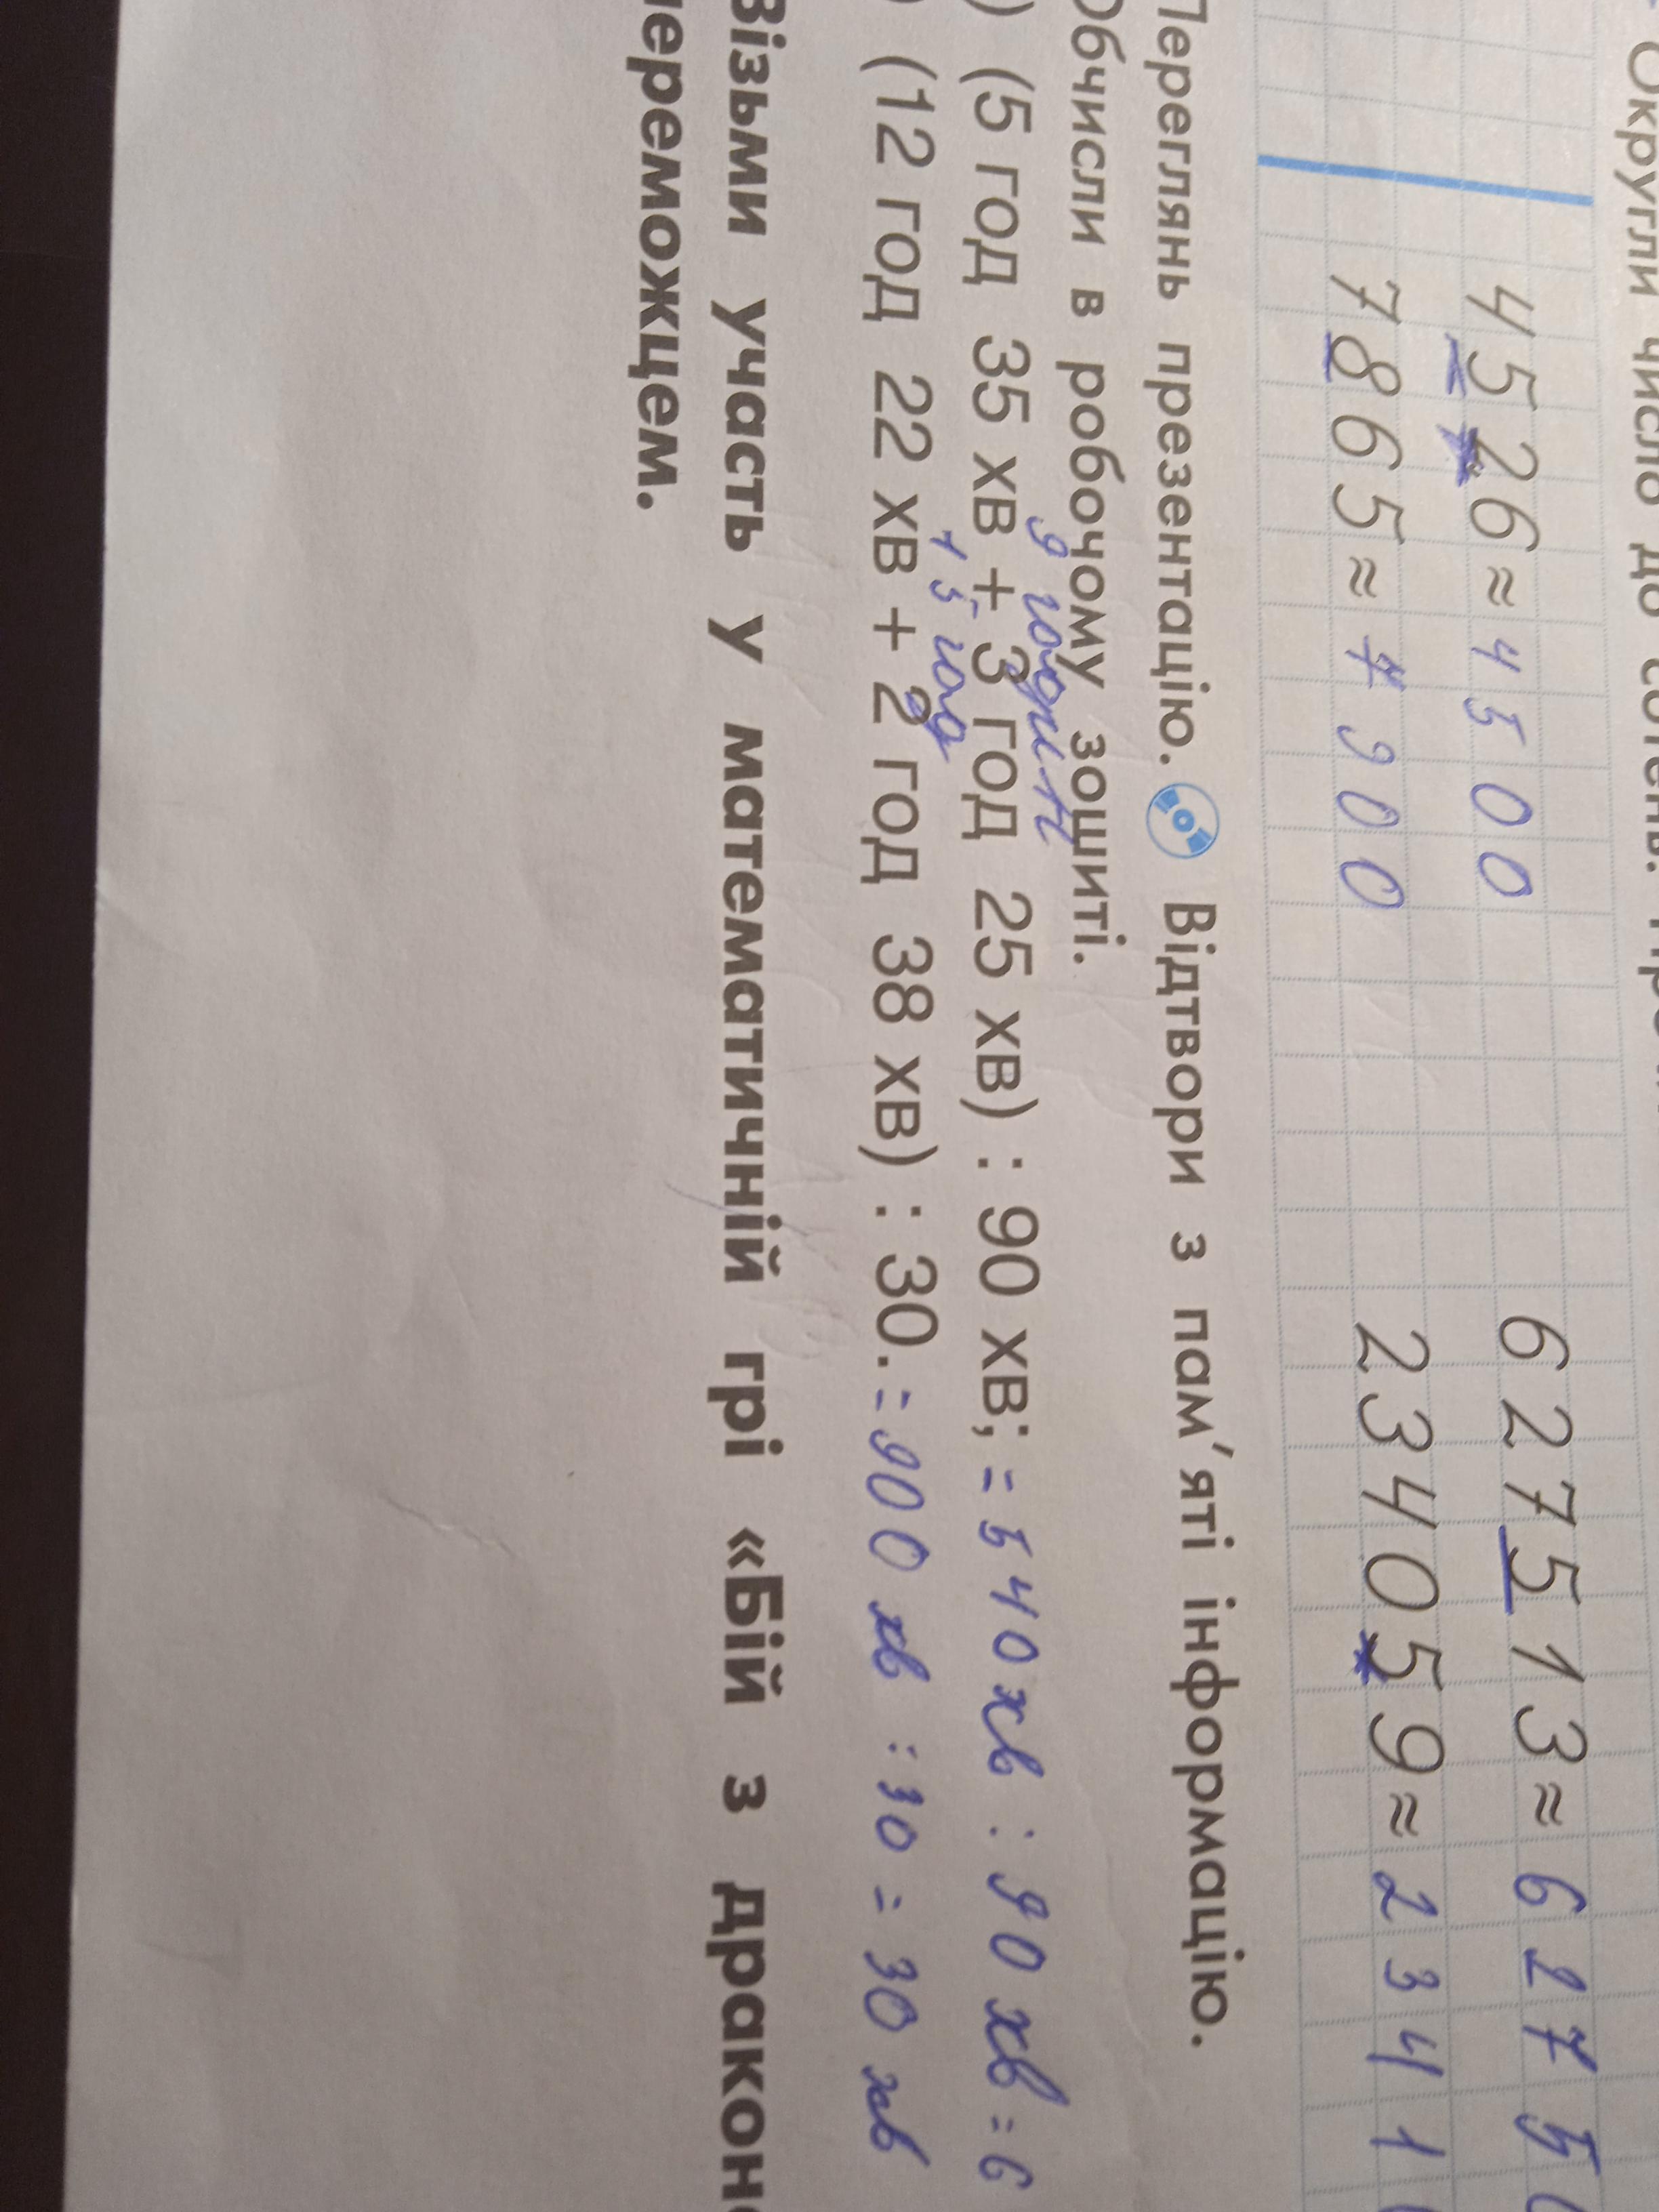 Округли число до сотень.
4526≈4500 627513≈6275
7865≈7900 234059≈2341
Переглянь презентацію. Відтвори з пам'яті інформацію.
Обчисли в робочому зошиті.
9 годин
) (5 год 35 хв + 3 год 25 хв) : 90 хв; = 540 хв : 90 хв = 6
15 год
) (12 год 22 хв + 2 год 38 хв) : 30. = 900 хв : 30 = 30 хв
Візьми участь у математичній грі «Бій з дракон
переможцем.